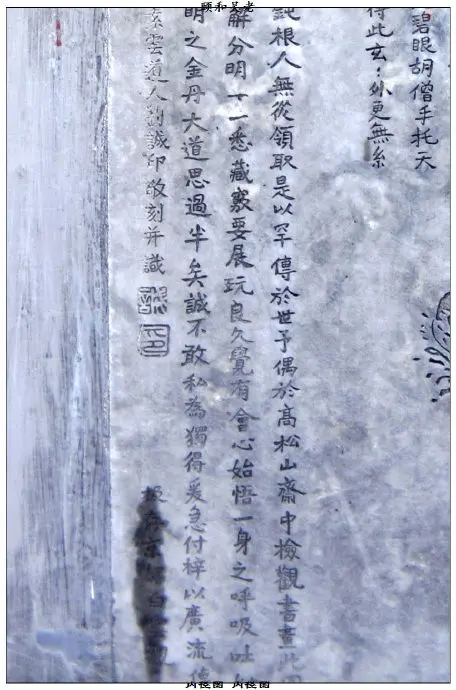 頤和吳老
碧眼胡僧手托天
得此玄〻外更無玄
鈍根人無從領取是以罕傳於世予偶於高松山齋中檢觀書畫此
解分明一一悉藏竅要展玩良久覺有會心始悟一身之呼吸吐
明之金丹大道思過半矣誠不敢私為獨得爰急付梓以廣流傳
素雲道人劉誠印敬刻并識
板存京都白雲觀
内經圖 内經圖